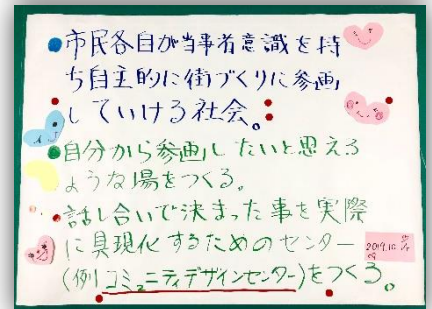 ●市民各自が当事者意識を持
ち自主的に街づくりに参画
していける社会。
●自分から参画したいと思える
ような場をつくる。
●話し合いで決まった事を実際
に具現化するためのセンター
(例コミュニティデザインセンター)をつくる。